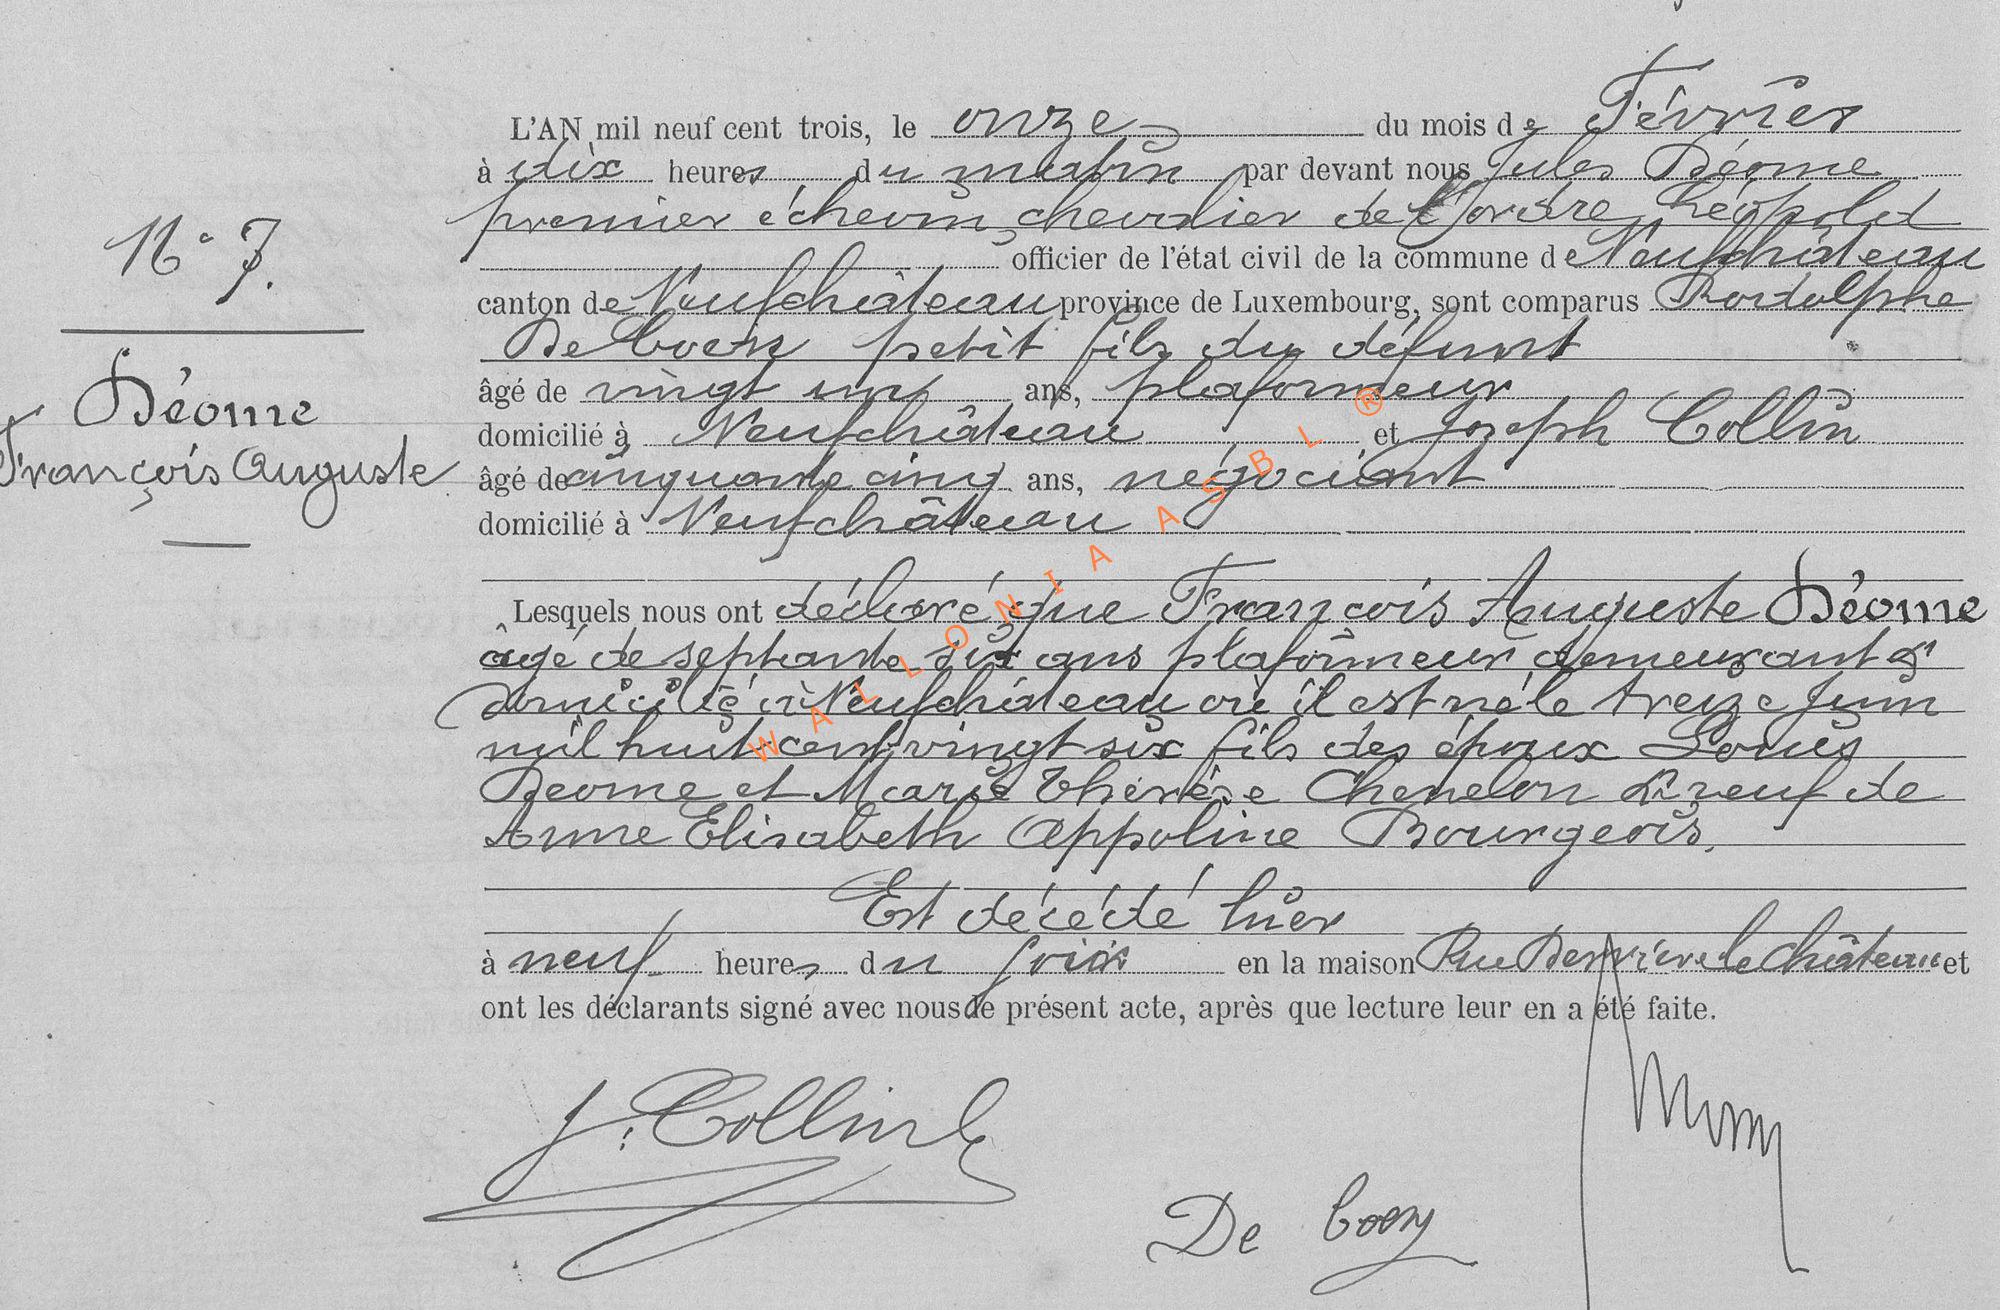 N° 7.
Déome
François Auguste
L'AN mil neuf cent trois, le onze du mois de Février
à dix heures du matin par devant nous Jules Déome
premier échevin, chevalier de l'ordre Léopold
officier de l'état civil de la commune de Neufchâteau
canton de Neufchâteau province de Luxembourg, sont comparus Rodolphe
De Coen petit fils du défunt
âgé de vingt un ans, plafonneur
domicilié à Neufchâteau et Joseph Collin
âgé de cinquante cinq ans, négociant
domicilié à Neufchâteau
Lesquels nous ont déclaré que François Auguste Déome
âgé de septante six ans plafonneur demeurant &
domicilié à Neufchâteau où il est né le treize Juin
mil huit cent vingt six fils des époux Louis
Deome et Marie Thérèse Chenelon & veuf de
Anne Elisabeth Appoline Bourgeois.
Est décédé hier
à neuf heures du soir en la maison Rue Derrière le Château et
ont les déclarants signé avec nous le présent acte, après que lecture leur en a été faite.
J. Collin
De Coen
WALLONIA ASBL ®